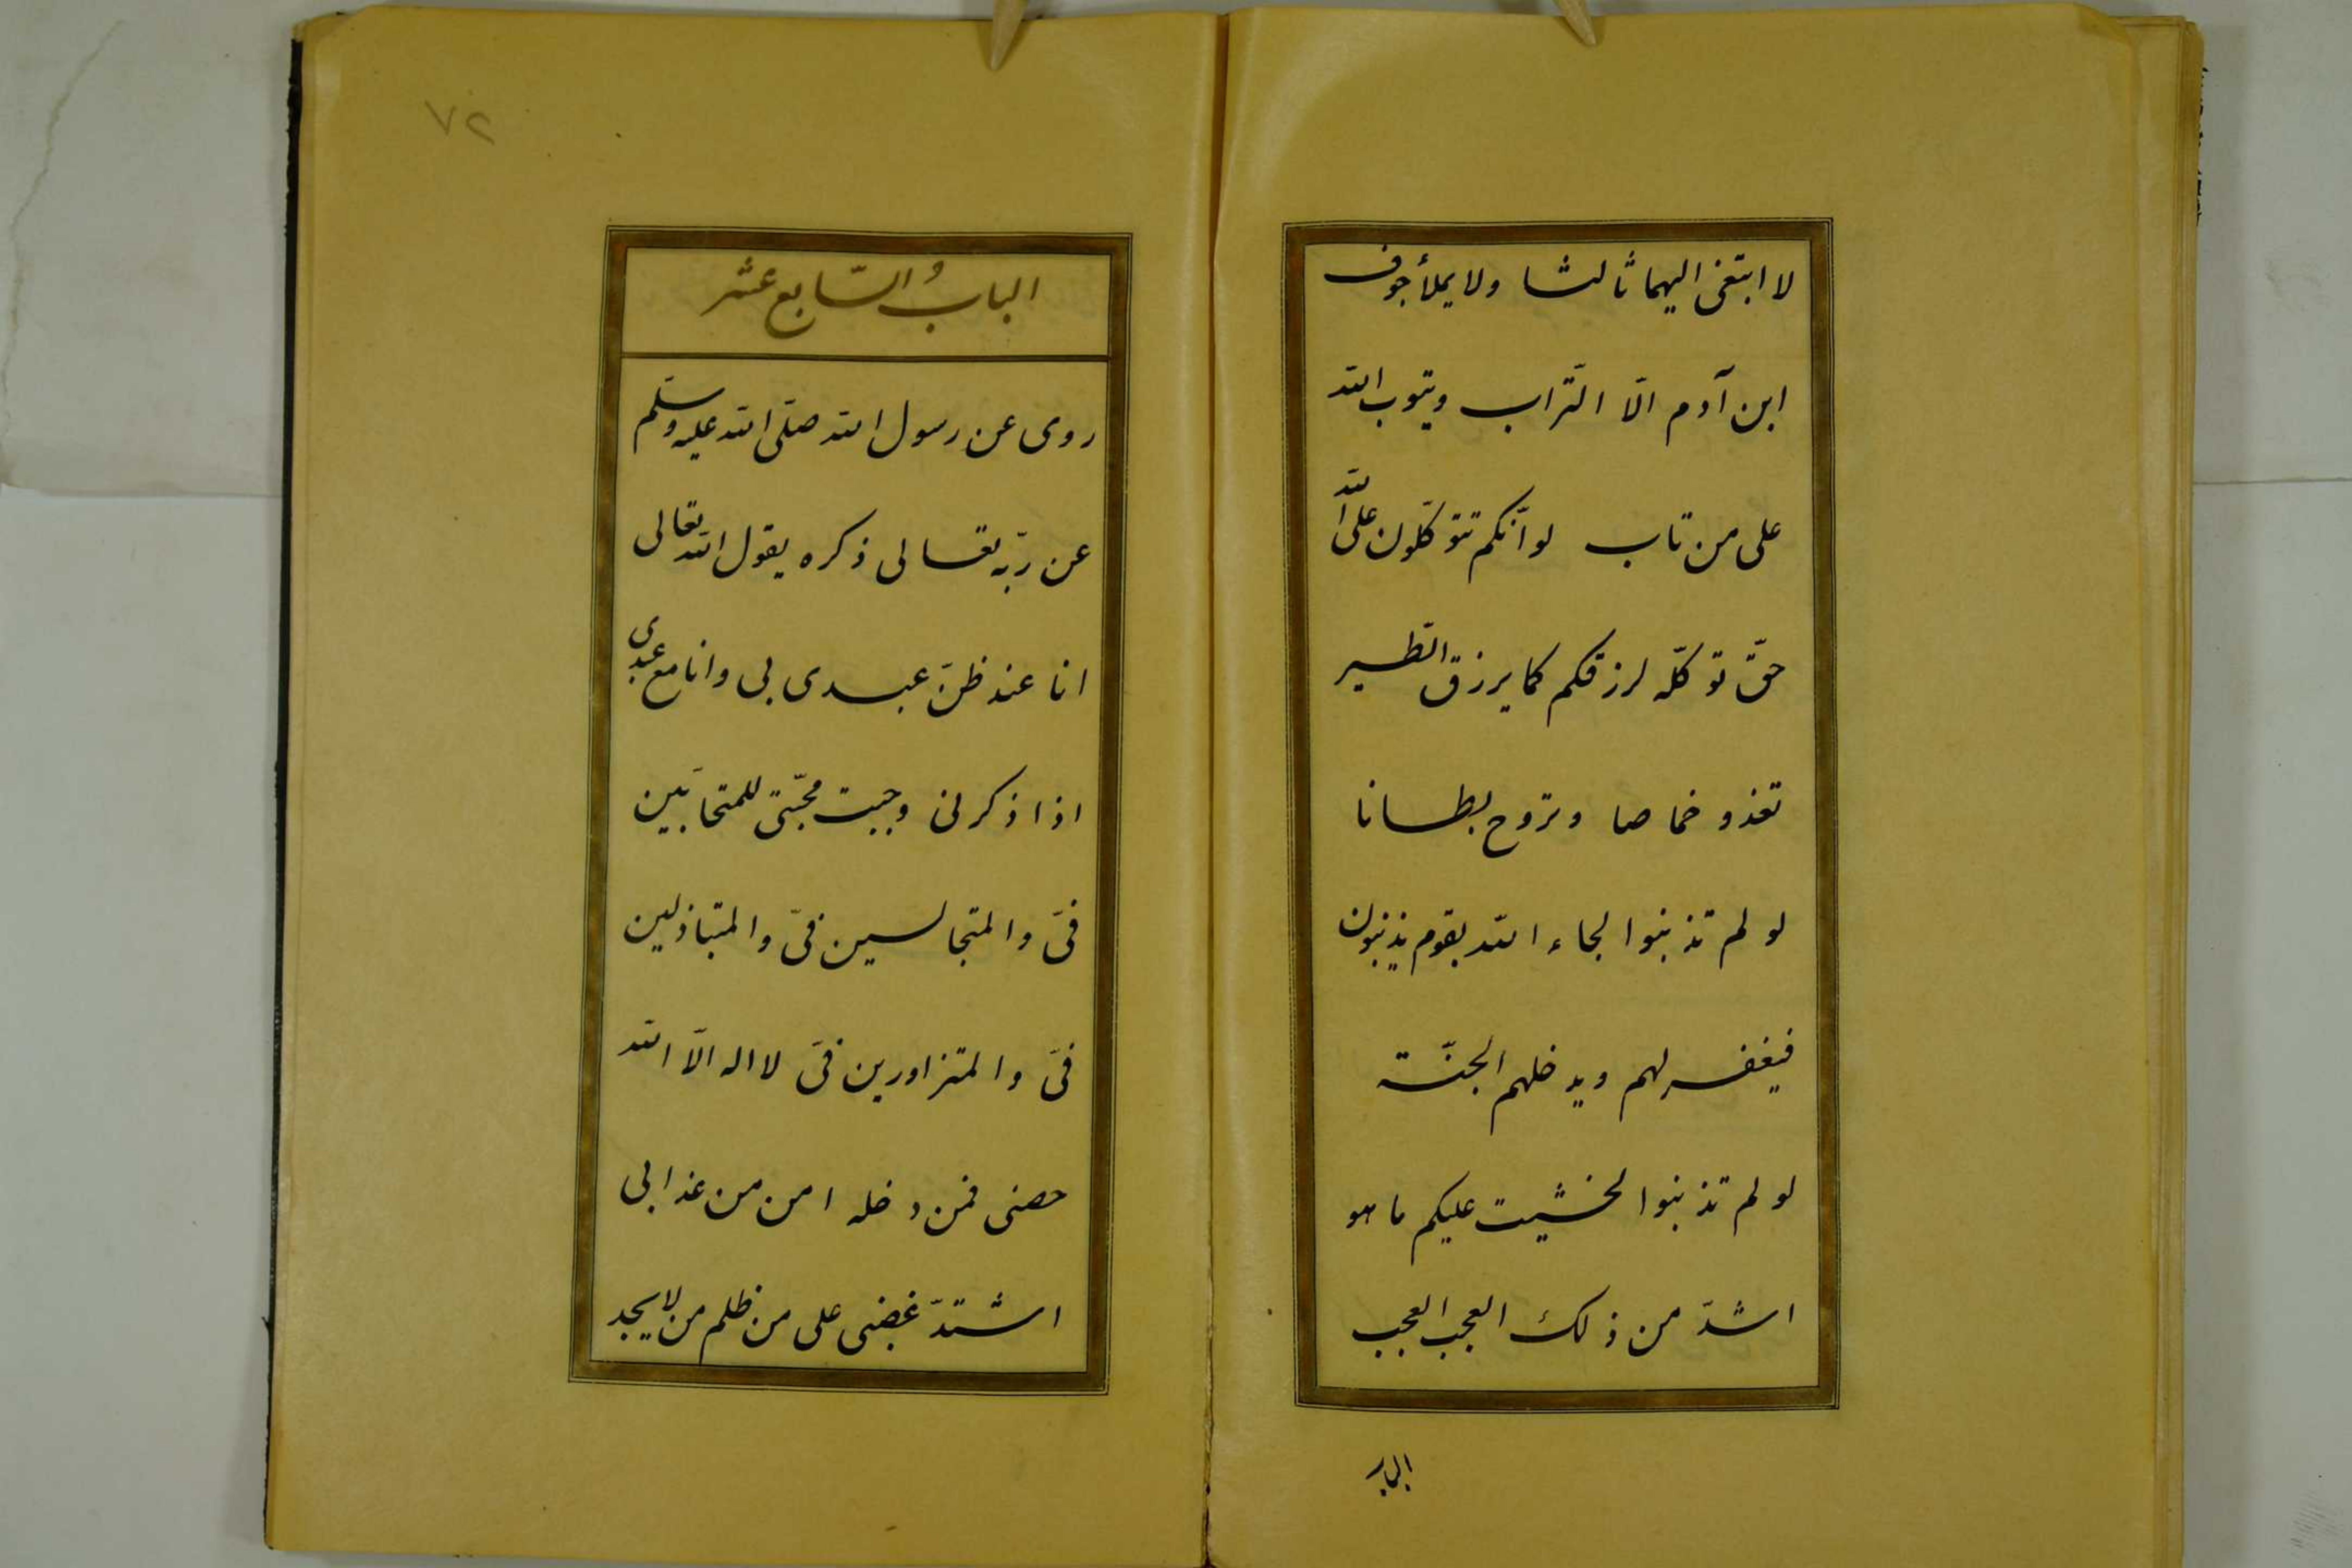 لا ابتغى اليهما ثالثا ولا يملأ جوف
ابن آدم الّا التّراب ويتوب الله
على من تاب لو انّكم تتوكّلون على الله
حقّ توكّله لرزقكم كما يرزق الطّير
تغذو خماصا وتروح بطانا
لو لم تذنبوا لجاء الله بقوم يذنبون
فيغفر لهم ويدخلهم الجنّة
لو لم تذنبوا لخشيت عليكم ما هو
اشدّ من ذلك العجب العجب
الباب
٧٢
البابُ السّابع عشر
روى عن رسول الله صلّى الله عليه وسلّم
عن ربّه تعالى ذكره يقول الله تعالى
انا عند ظنّ عبدى بى وانا مع عبدى
اذا ذكرنى وجبت محبّتى للمتحابّين
فىّ والمتجالسين فىّ والمتباذلين
فىّ والمتزاورين فىّ لا اله الّا الله
حصنى فمن دخله امن من عذابى
اشتدّ غضبى على من ظلم من لا يجد